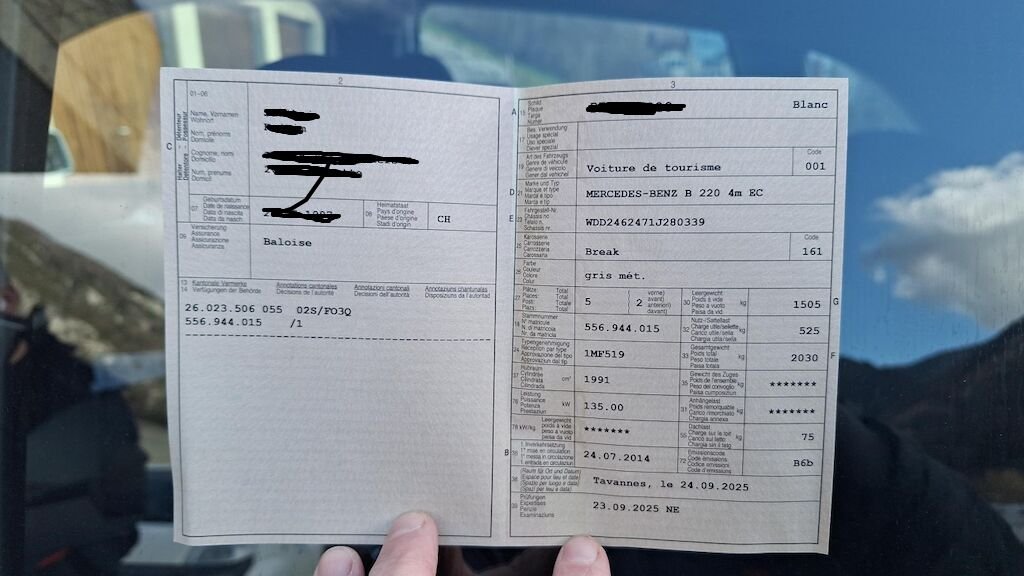 2
01-06
Name, Vornamen
Wohnort
Nom, prénoms
Domicile
Cognome, nomi
Domicilio
Num, prenums
Domicil
C
Halter Détenteur
Detentore Possessur
07
Geburtsdatum
Date de naissance
Data di nascita
Data da nasch.
08
Heimatstaat
Pays d'origine
Paese d'origine
Stadi d'origin
CH
09
Versicherung
Assurance
Assicurazione
Assicuranza
Baloise
13
14
Kantonale Vermerke
Verfügungen der Behörde
Annotations cantonales
Décisions de l'autorité
Annotazioni cantonali
Decisioni dell'autorità
Annotaziuns chantunalas
Disposiziuns da l'autoritad
26.023.506 055 02S/FO3Q
556.944.015 /1
3
A 15
Schild
Plaque
Targa
Numer
Blanc
17
Bes. Verwendung
Usage spécial
Uso speciale
Diever spezial
19
Art des Fahrzeugs
Genre de véhicule
Genere di veicolo
Gener dal vehichel
Voiture de tourisme
Code
001
D 21
Marke und Typ
Marque et type
Marca e tipo
Marca e tip
MERCEDES-BENZ B 220 4m EC
E 23
Fahrgestell-Nr.
Châssis no
Telaio n.
Schassis nr.
WDD2462471J280339
25
Karosserie
Carrosserie
Carrozzeria
Carossaria
Break
Code
161
26
Farbe
Couleur
Colore
Colur
gris mét.
27
Plätze: Total
Places: Total
Posti: Totale
Plazs: Total
5
vorne)
avant)
anteriori)
davant)
2
30
Leergewicht
Poids à vide
Peso a vuoto
Paisa da vid
kg
1505
G
18
Stammnummer
N° matricule
N. di matricola
Nr. da matricla
556.944.015
32
Nutz-/Sattellast
Charge utile/sellette
Carico utile/sella
Chargia utila/sella
kg
525
24
Typengenehmigung
Réception par type
Approvazione del tipo
Approvaziun dal tip
1MF519
33
Gesamtgewicht
Poids total
Peso totale
Paisa totala
kg
2030
F
37
Hubraum
Cylindrée
Cilindrata
Cilindrada
cm³
1991
35
Gewicht des Zuges
Poids de l'ensemble
Peso del convoglio
Paisa cumposiziun
kg
*******
76
Leistung
Puissance
Potenza
Prestaziun
kW
135.00
31
Anhängelast
Poids remorquable
Carico rimorchiato
Chargia annexa
kg
*******
78 kW/kg
Leergewicht
poids à vide
peso a vuoto
paisa da vid
*******
55
Dachlast
Charge sur le toit
Carico sul tetto
Chargia sin il tetg
kg
75
B 36
1. Inverkehrsetzung
1re mise en circulation
1a messa in circolazione
1. entrada en circulaziun
24.07.2014
72
Emissionscode
Code émissions
Codice emissioni
Code d'emissiuns
B6b
38
(Raum für Ort und Datum)
(Espace pour lieu et date)
(Spazio per luogo e data)
(Spazi per lieu e data)
Tavannes, le 24.09.2025
39
Prüfungen
Expertises
Perizie
Examinaziuns
23.09.2025 NE